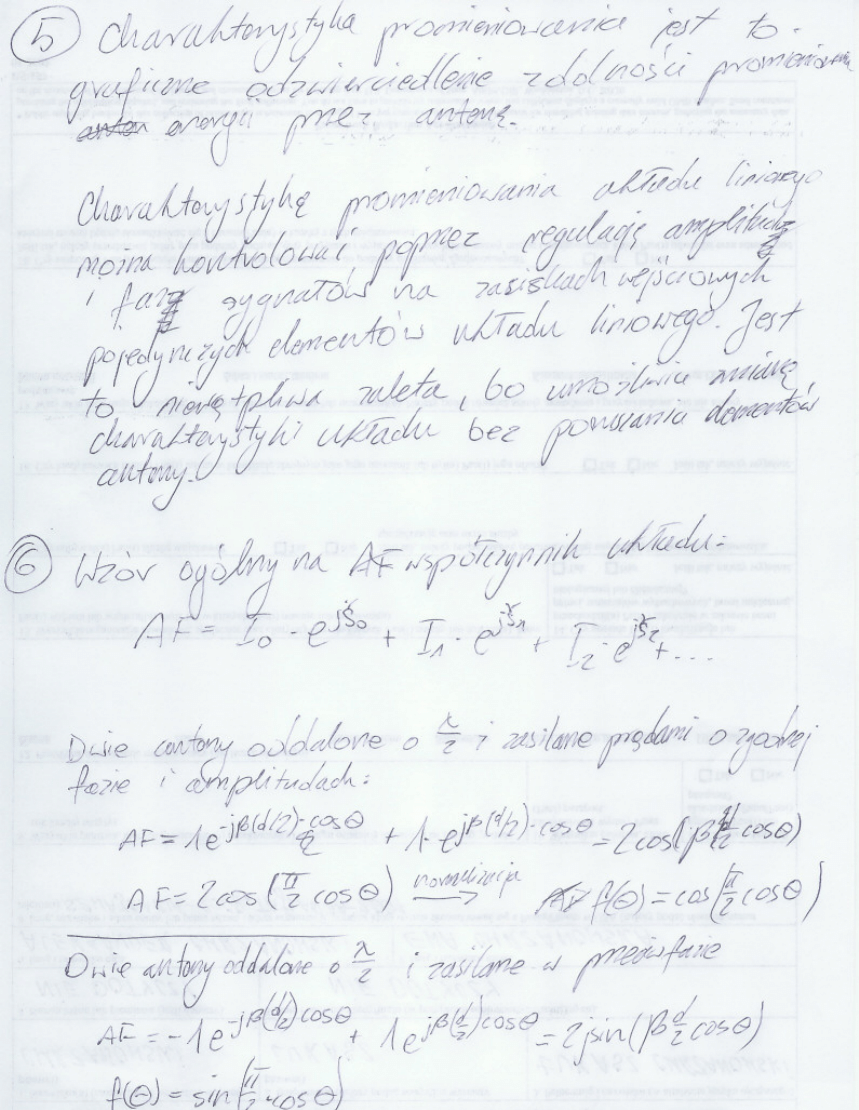 5 Charakterystyka promieniowania jest to
graficzne odzwierciedlenie zdolności promieniowania
energii przez antenę.
Charakterystykę promieniowania układu liniowego
można kontrolować poprzez regulację amplitudy
i fazy sygnałów na zaciskach wejściowych
pojedynczych elementów układu liniowego. Jest
to niewątpliwa zaleta, bo umożliwia zmianę
charakterystyki układu bez poruszania elementów
anteny.
6 Wzór ogólny na AF współczynnik układu:
AF = I₀ · e^{jξ₀} + I₁ · e^{jξ₁} + I₂ · e^{jξ₂} + ...
Dwie anteny oddalone o λ/2 i zasilane prądami o zgodnej
fazie i amplitudach:
AF = 1e^{-jβ(d/2)·cosΘ} + 1·e^{jβ(d/2)·cosΘ} = 2cos(β d/2 cosΘ)
AF = 2cos(π/2 cosΘ) normalizacja → f(Θ) = cos(π/2 cosΘ)
Dwie anteny oddalone o λ/2 i zasilane w przeciwfazie
AF = -1e^{-jβ(d/2)cosΘ} + 1e^{jβ(d/2)cosΘ} = 2jsin(β d/2 cosΘ)
f(Θ) = sin(π/2 · cosΘ)